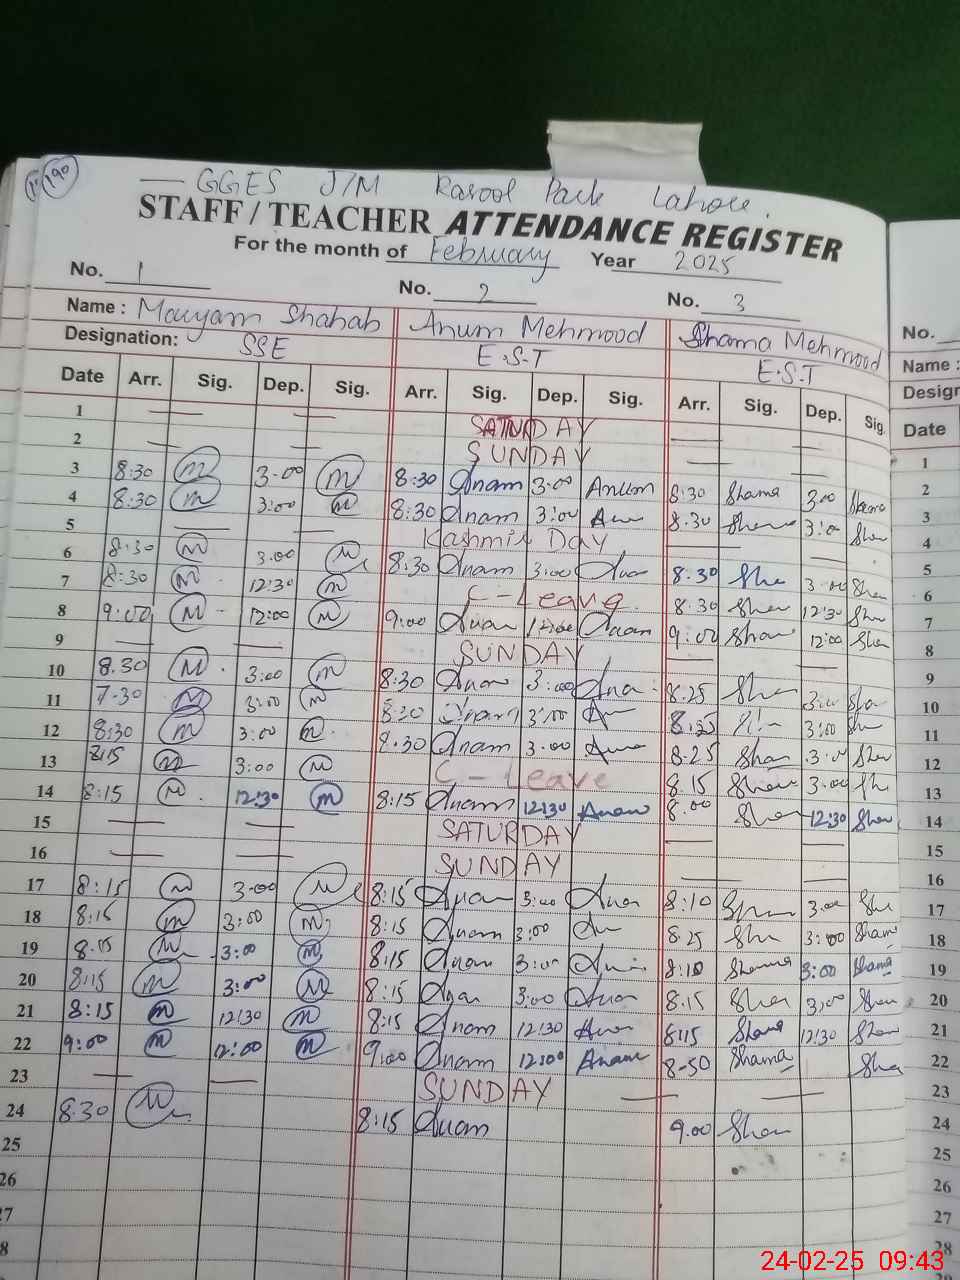 190
GGES J/M Rasool Park Lahore.
STAFF / TEACHER ATTENDANCE REGISTER
For the month of February Year 2025
No. 1 No. 2 No. 3 No.
Name : Maryam Shahab Anum Mehmood Shama Mehmood Name :
Designation: SSE E.S.T E.S.T
Date Arr. Sig. Dep. Sig. Arr. Sig. Dep. Sig. Arr. Sig. Dep. Sig. Date
1 SATURDAY
2 SUNDAY
3 8:30 m 3:00 m 8:30 Anam 3:00 Anum 8:30 Shama 3:00 Shama
4 8:30 m 3:00 m 8:30 Anam 3:00 8:30 3:00
5 Kashmir DAY
6 8:30 m 3:00 m 8:30 Anam 3:00 8:30 She 3:00
7 8:30 m 12:30 m C-Leave 8:30 12:30
8 9:00 m 12:00 m 9:00 12:00 9:00 12:00
9 SUNDAY
10 8.30 m 3:00 m 8:30 3:00 8.25 3:00
11 7-30 m 3:00 m 8:30 3:00 8:25 3:00
12 8:30 m 3:00 m 8.30 Anam 3:00 8:25 3:00
13 8:15 m 3:00 m C-Leave 8.15 3:00
14 8:15 m 12:30 m 8:15 Anam 12:30 Anam 8:00 12:30
15 SATURDAY
16 SUNDAY
17 8:15 m 3:00 m 8:15 3:00 8:10 3:00
18 8:15 m 3:00 m 8:15 Anam 3:00 8:25 3:00 Shama
19 8:15 m 3:00 m 8:15 3:00 8:10 Shama 3:00 Shama
20 8:15 m 3:00 m 8:15 3:00 8:15 3:00
21 8:15 m 12:30 m 8:15 Anam 12:30 8:15 Shama 12:30
22 9:00 m 12:00 m 9:00 Anam 12:00 Anam 8-50 Shama
23 SUNDAY
24 8:30 8:15 Anam 9.00
25
26
27
28
1
2
3
4
5
6
7
8
9
10
11
12
13
14
15
16
17
18
19
20
21
22
23
24
25
26
27
28
24-02-25 09:43